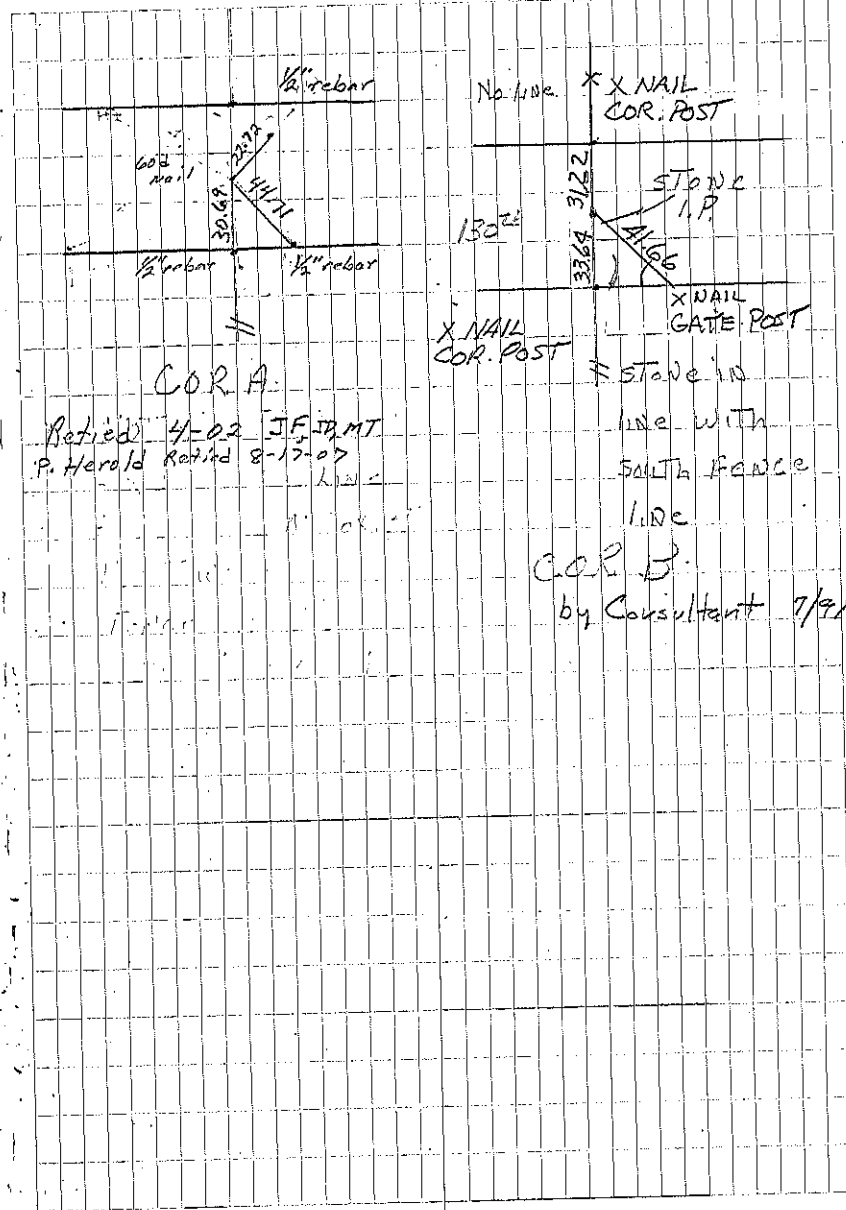 1/2" rebar
60d
Nail
22.72
44.71
30.69
1/2" rebar
1/2" rebar
COR A
Retied 4-02 JF, JD, MT
P. Herold Retied 8-17-07
No line
X X NAIL
COR. POST
31.22
STONE
I.P.
130th
33.64
41.66
X NAIL
GATE POST
X NAIL
COR. POST
STONE IN
LINE WITH
SOUTH FENCE
LINE
COR B
by Consultant